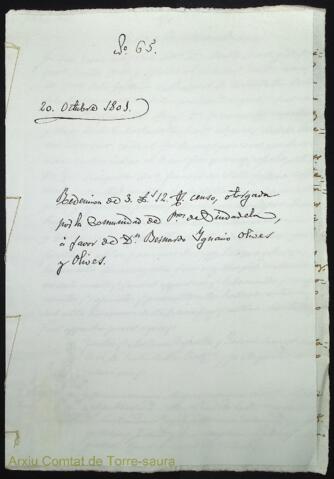 Nº 65.
20. Octubre 1801.
Redencion de 3. L.s 12. censo, otorgada
por la Comunidad de Pres de Ciudadela,
á favor de Dn Bernardo Ignacio Olives
y Olives.
Arxiu Comtat de Torre-saura